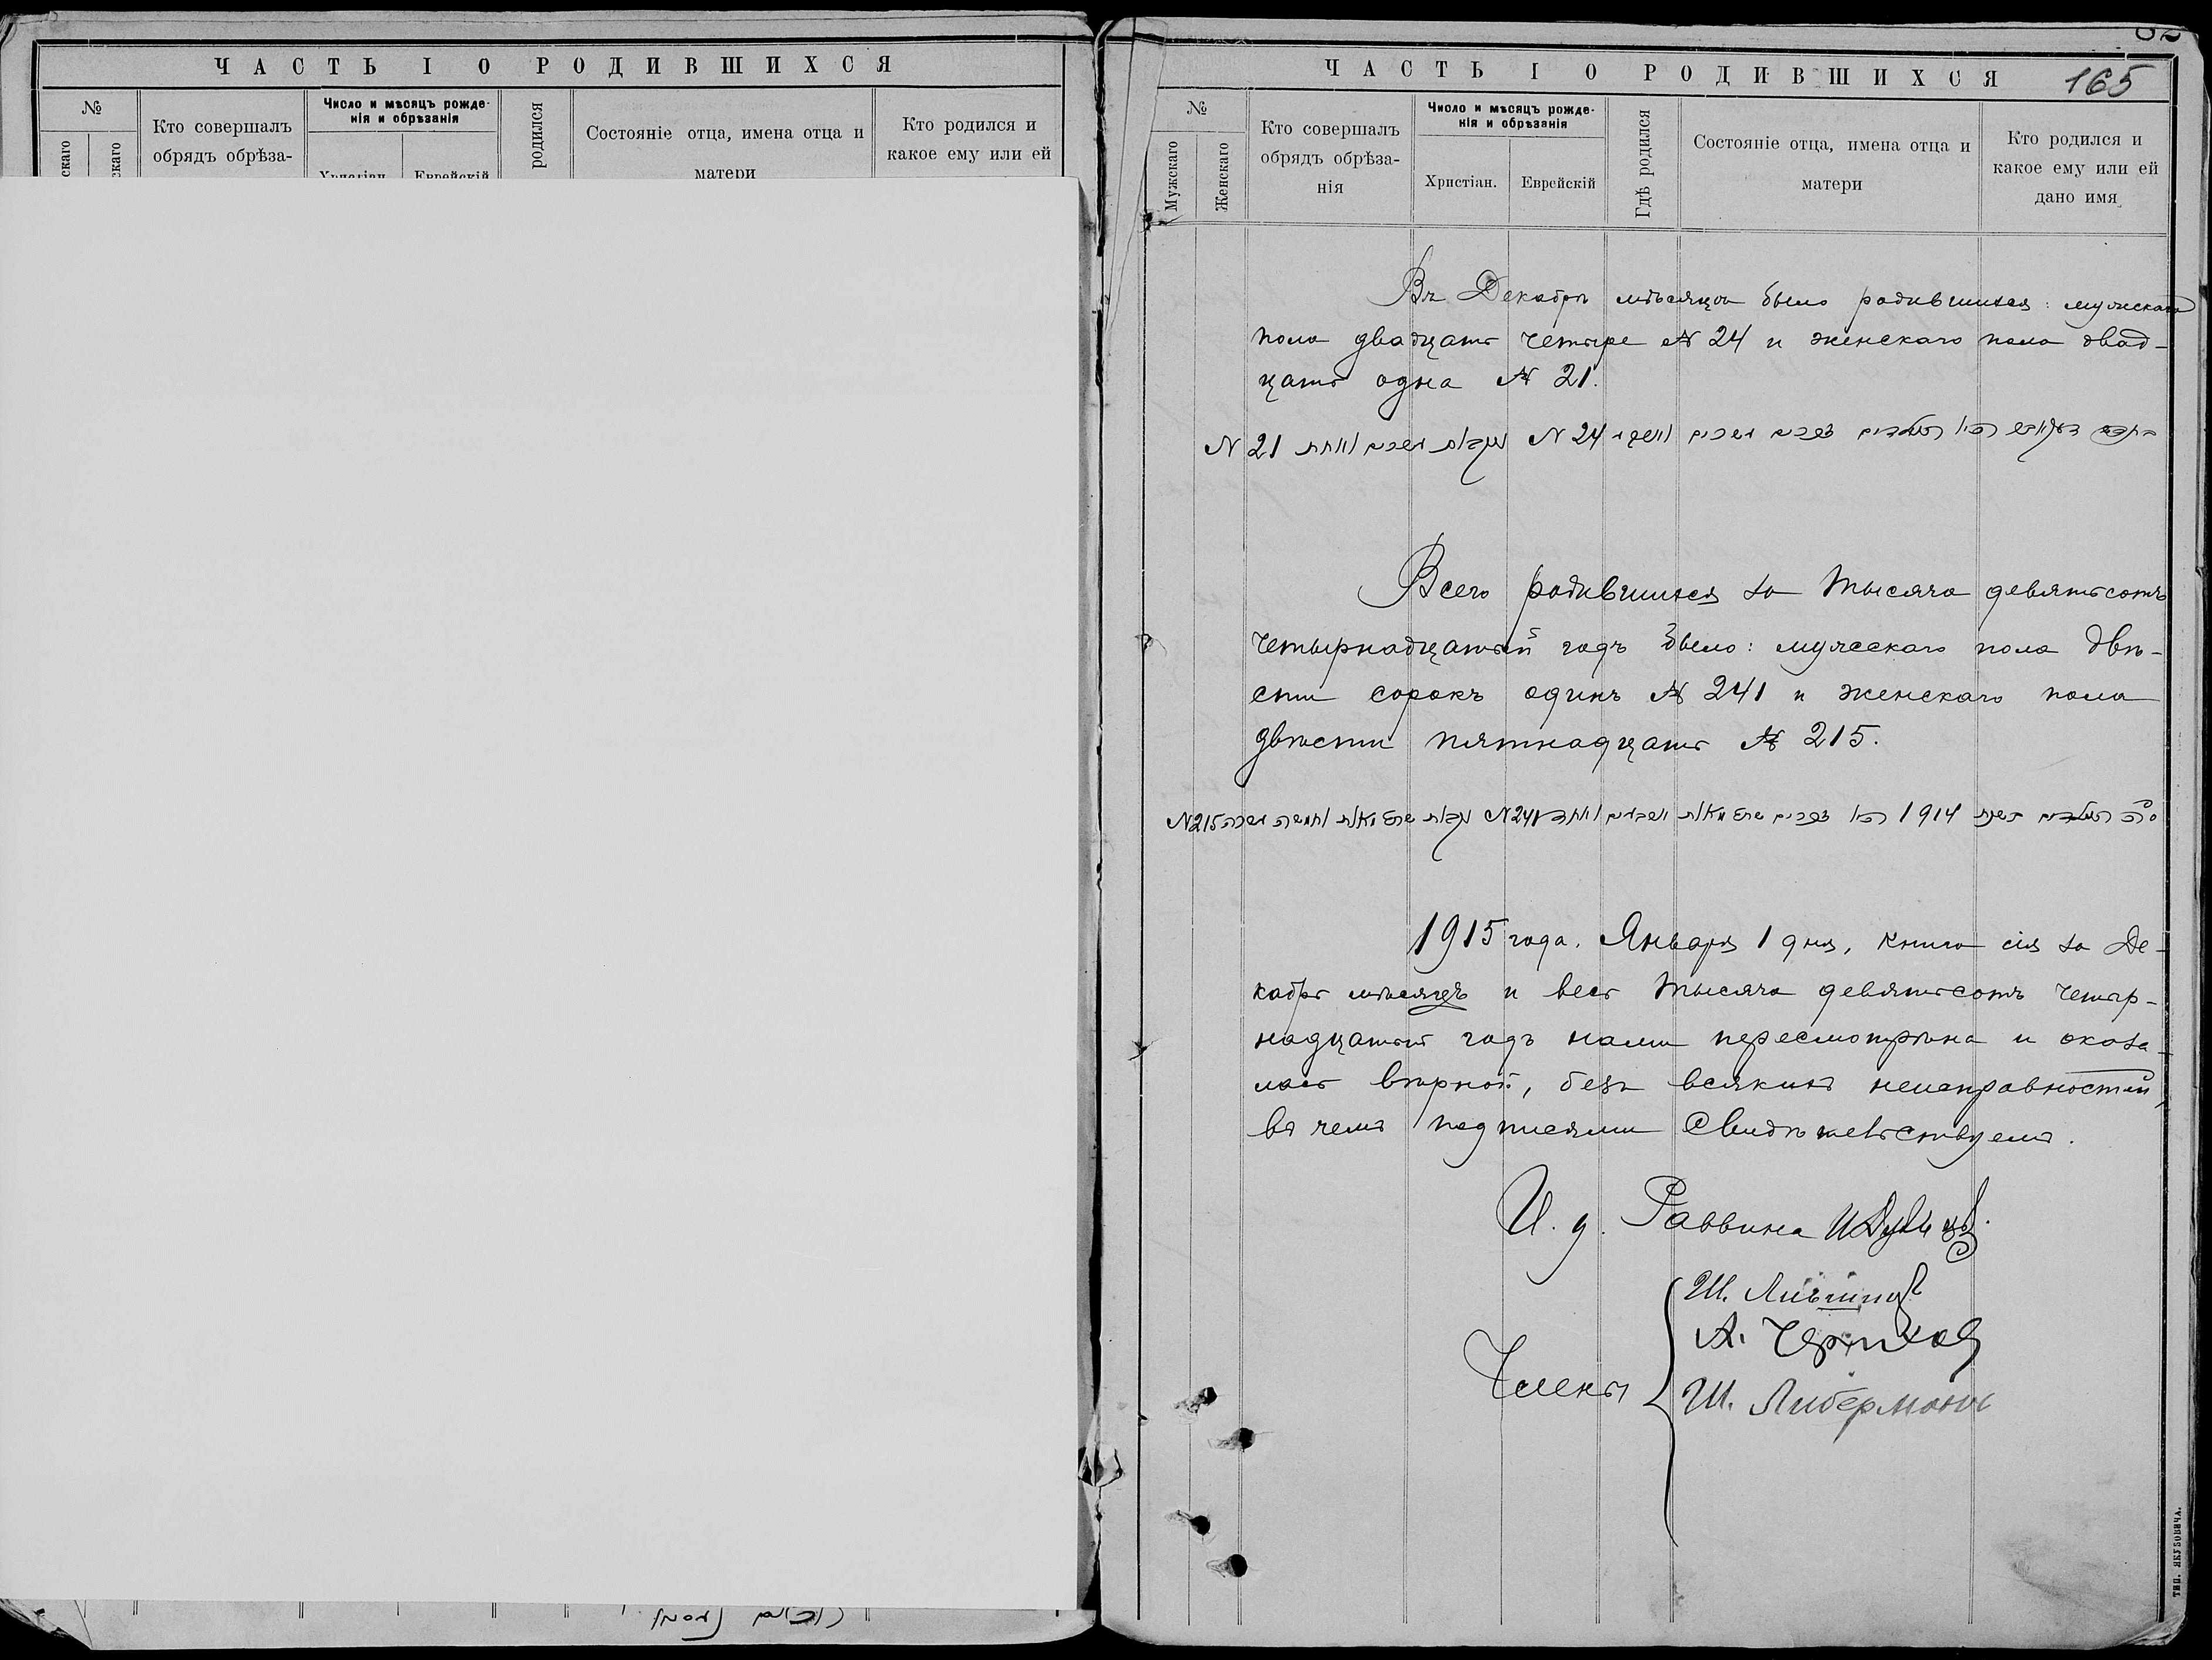 ЧАСТЬ I О РОДИВШИХСЯ
№
скаго
скаго
Кто совершалъ
обрядъ обрѣза-
Число и мѣсяцъ рожде-
нія и обрѣзанія
Христіан.
Еврейскій
родился
Состояніе отца, имена отца и
матери
Кто родился и
какое ему или ей
ЧАСТЬ I О РОДИВШИХСЯ
165
№
Мужскаго
Женскаго
Кто совершалъ
обрядъ обрѣза-
нія
Число и мѣсяцъ рожде-
нія и обрѣзанія
Христіан.
Еврейскій
Гдѣ родился
Состояніе отца, имена отца и
матери
Кто родился и
какое ему или ей
дано имя
Въ Декабрѣ мѣсяцѣ было родившихся: мужскаго
пола двадцать четыре № 24 и женскаго пола двад-
цать одна № 21.
הנולדים היו זכרים עשרים וארבעה N 24 נקבות עשרים ואחת N 21
Всего родившихся за тысяча девятьсотъ
четырнадцатый годъ было: мужескаго пола двѣ-
сти сорокъ одинъ № 241 и женскаго пола
двѣсти пятнадцать № 215.
ס״ה הנולדים בשנת 1914 היו זכרים שתי מאות וארבעים ואחד N 241 נקבות שתי מאות וחמשה עשרה N 215
1915 года. Января 1 дня, книга сія за Де-
кабрь мѣсяцъ и весь тысяча девятьсотъ четыр-
надцатый годъ нами пересмотрѣна и оказа-
лась вѣрной, безъ всякихъ неисправностей,
въ чемъ подписями свидѣтельствуемъ.
И. д. Раввина
Члены
Ш.
А.
Ш. Либерманъ
ТИП. ЯКУБОВИЧА.